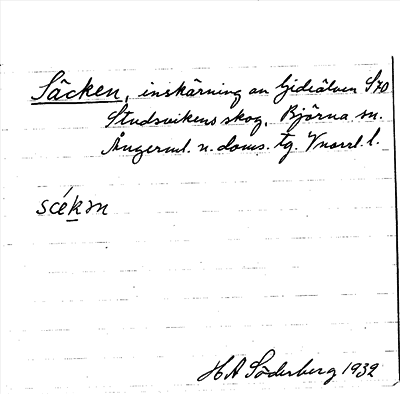 Säcken, inskärning av Gideälven SO
Studsvikens skog, Björna sn.
Ångerml. n. doms. tg. Vnorrl. l.
scékm
H A Söderberg 1932